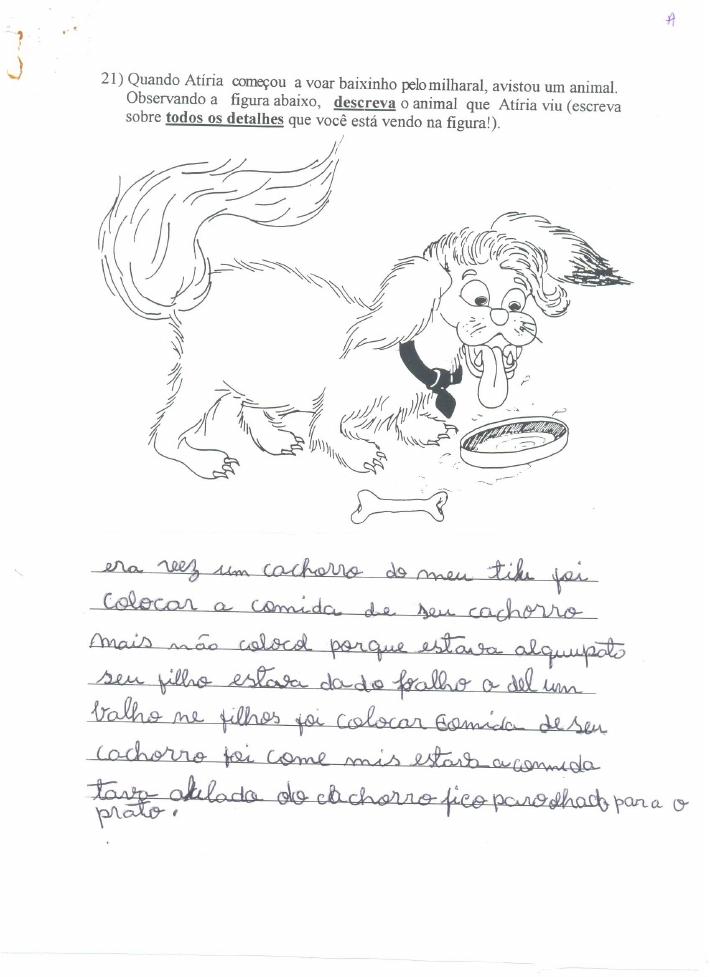 A
21) Quando Atíria começou a voar baixinho pelo milharal, avistou um animal.
Observando a figura abaixo, descreva o animal que Atíria viu (escreva
sobre todos os detalhes que você está vendo na figura!).
era veez um cachorro do meu tihu foi
colocar a comida de seu cachorro
mais não colocol porque estava
seu filho estava da do o del um
valho ne filhos foi colocar comida de seu
cachorro foi come mis estava a commida
tava do cachorro fico para o
prato.